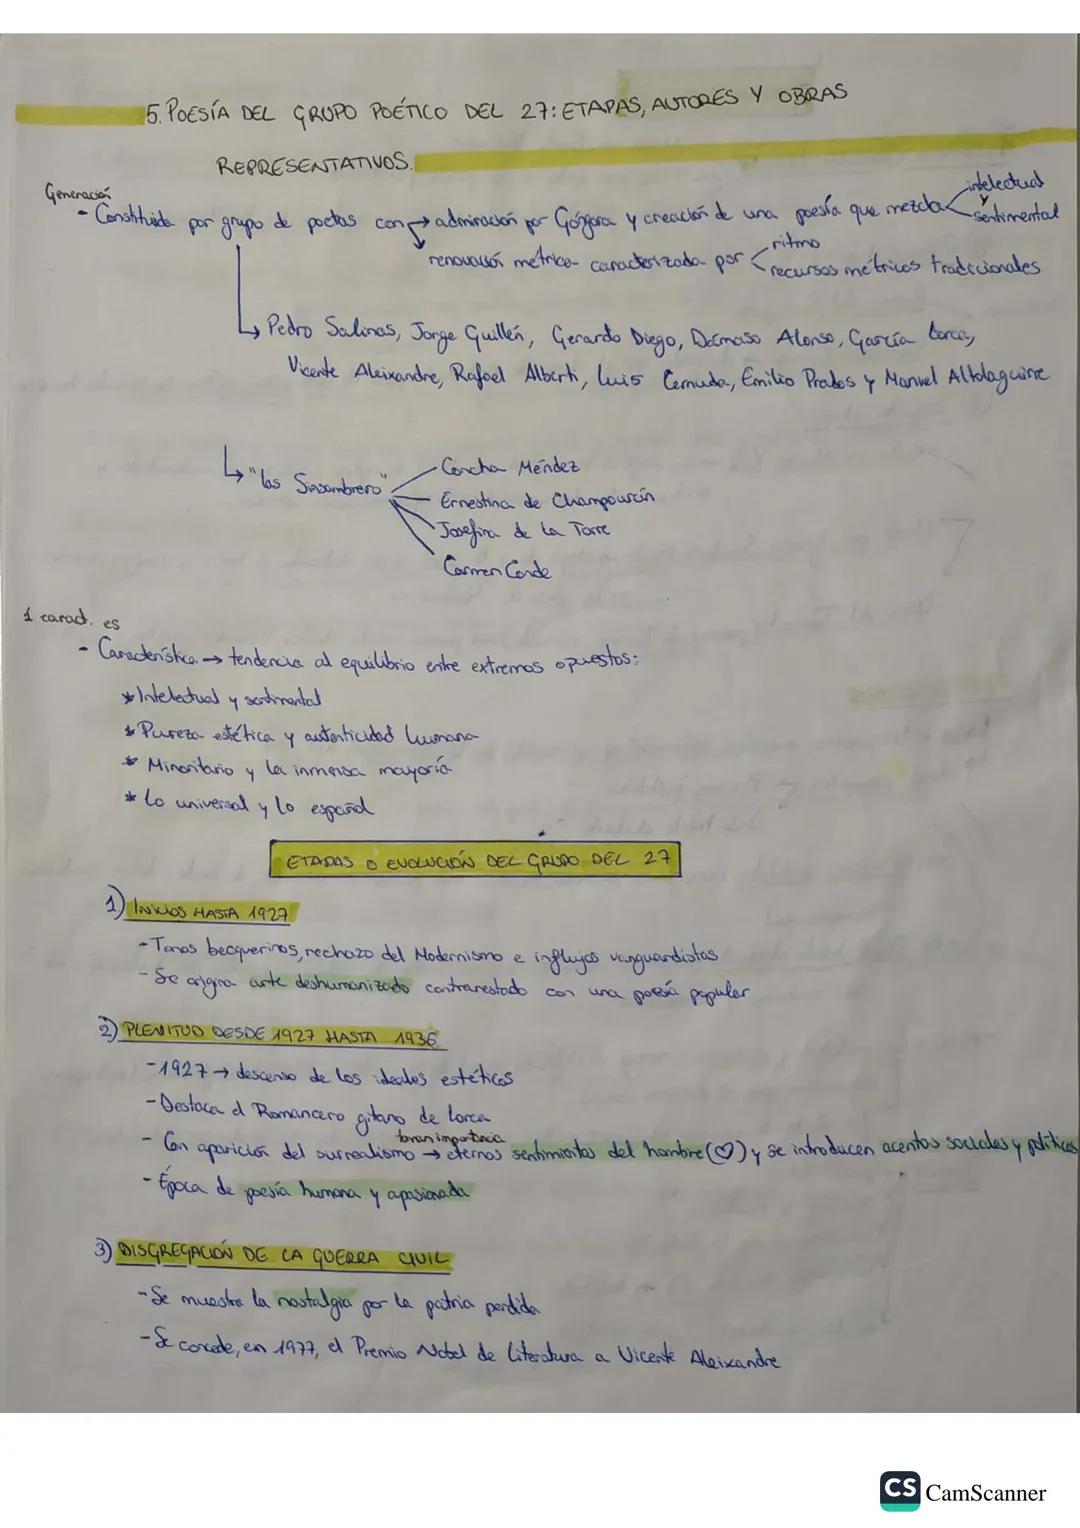 5. POESÍA DEL GRUPO POÉTICO DEL 27: ETAPAS, AUTORES Y OBRAS
REPRESENTATIVOS.
Generación
- Constituida por grupo de poetas con → admiración por Góngora y creación de una poesía que mezcla intelectual y sentimental
renovación métrica caracterizada por ritmo
recursos métricos tradicionales
Pedro Salinas, Jorge Guillén, Gerardo Diego, Dámaso Alonso, García Lorca,
Vicente Aleixandre, Rafael Alberti, Luis Cernuda, Emilio Prados y Manuel Altolaguirre
"Las Sinsombrero"
Concha Méndez
Ernestina de Champourcín
Josefina de la Torre
Carmen Conde
1 caract. es
- Característica → tendencia al equilibrio entre extremos opuestos:
* Intelectual y sentimental
* Pureza estética y autenticidad humana
* Minoritario y la inmensa mayoría
* Lo universal y lo español
ETAPAS O EVOLUCIÓN DEL GRUPO DEL 27
1) INICIOS HASTA 1927
- Tonos becquerinos, rechazo del Modernismo e influjos vanguardistas
- Se origina arte deshumanizado contrarestado con una poesía popular
2) PLENITUD DESDE 1927 HASTA 1936
- 1927 → descenso de los ideales estéticos
- Destaca el Romancero gitano de Lorca
toman importancia
- Con aparición del surrealismo → eternos sentimientos del hombre (♡) y se introducen acentos sociales y políticos
- Época de poesía humana y apasionada
3) DISGREGACIÓN DE LA GUERRA CIVIL
- Se muestra la nostalgia por la patria perdida
- Se concede, en 1977, el Premio Nobel de Literatura a Vicente Aleixandre
CS CamScanner